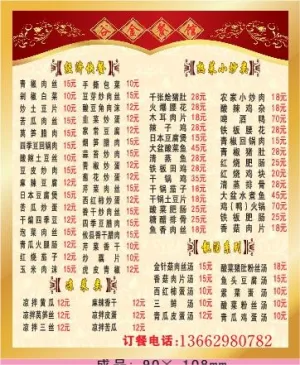 经济快餐
青椒肉丝 15元
剁椒白菜 10元
炒土豆片 10元
苦瓜炒蛋 12元
莴笋腊肉 15元
四季豆回锅肉 15元
酸辣土豆丝 10元
豆皮炒肉 12元
麻辣豆腐 12元
日本豆腐 12元
苦瓜炒肉 12元
干煸四季豆 12元
泡菜肉丝 15元
青瓜火腿肠 12元
玉米肉沫 15元
手撕包菜 10元
豆芽炒肉丝 12元
酸豆角肉沫 12元
青瓜炒蛋 12元
家常豆腐 12元
莴笋肉丝 12元
麻婆豆腐 10元
芹菜肉丝 12元
青椒炒蛋 12元
芹菜香干 12元
炒藕片 10元
皮皮青椒 12元
热菜小炒类
千张烩猪肚 28元
火爆腰花 18元
木耳肉片 18元
辣子鸡 28元
日本豆腐煲 18元
大盆酸菜鱼 28元
清蒸鱼 28元
铁板田鸡 35元
铁板鸡肉 28元
干锅茄子 18元
干锅土豆片 18元
黄豆猪尾 28元
鱼香肉丝 18元
农家小炒肉 18元
酸辣鸡杂 18元
啤酒鸭
铁板腰花 28元
青椒回锅肉 18元
红烧肥肠 28元
红烧鸡块 28元
清蒸排骨 28元
大盆水煮鱼 28元
红烧茄子 18元
酸菜肥肠 28元
红烧排骨 28元
凉菜类
凉拌黄瓜 12元
凉拌莴笋丝 12元
凉拌三丝 12元
麻辣香干 12元
凉拌苦瓜 12元
凉拌皮蛋 12元
金针菇肉丝汤 15元
香菇肉片汤 15元
西红柿蛋汤 10元
三鲜汤 15元
青瓜皮蛋汤 12元
酸菜猪肚丝汤 25元
鱼头豆腐汤 25元
紫菜蛋汤 10元
酸菜粉丝汤 10元
青瓜鸡蛋汤 10元
订餐电话:13662980782